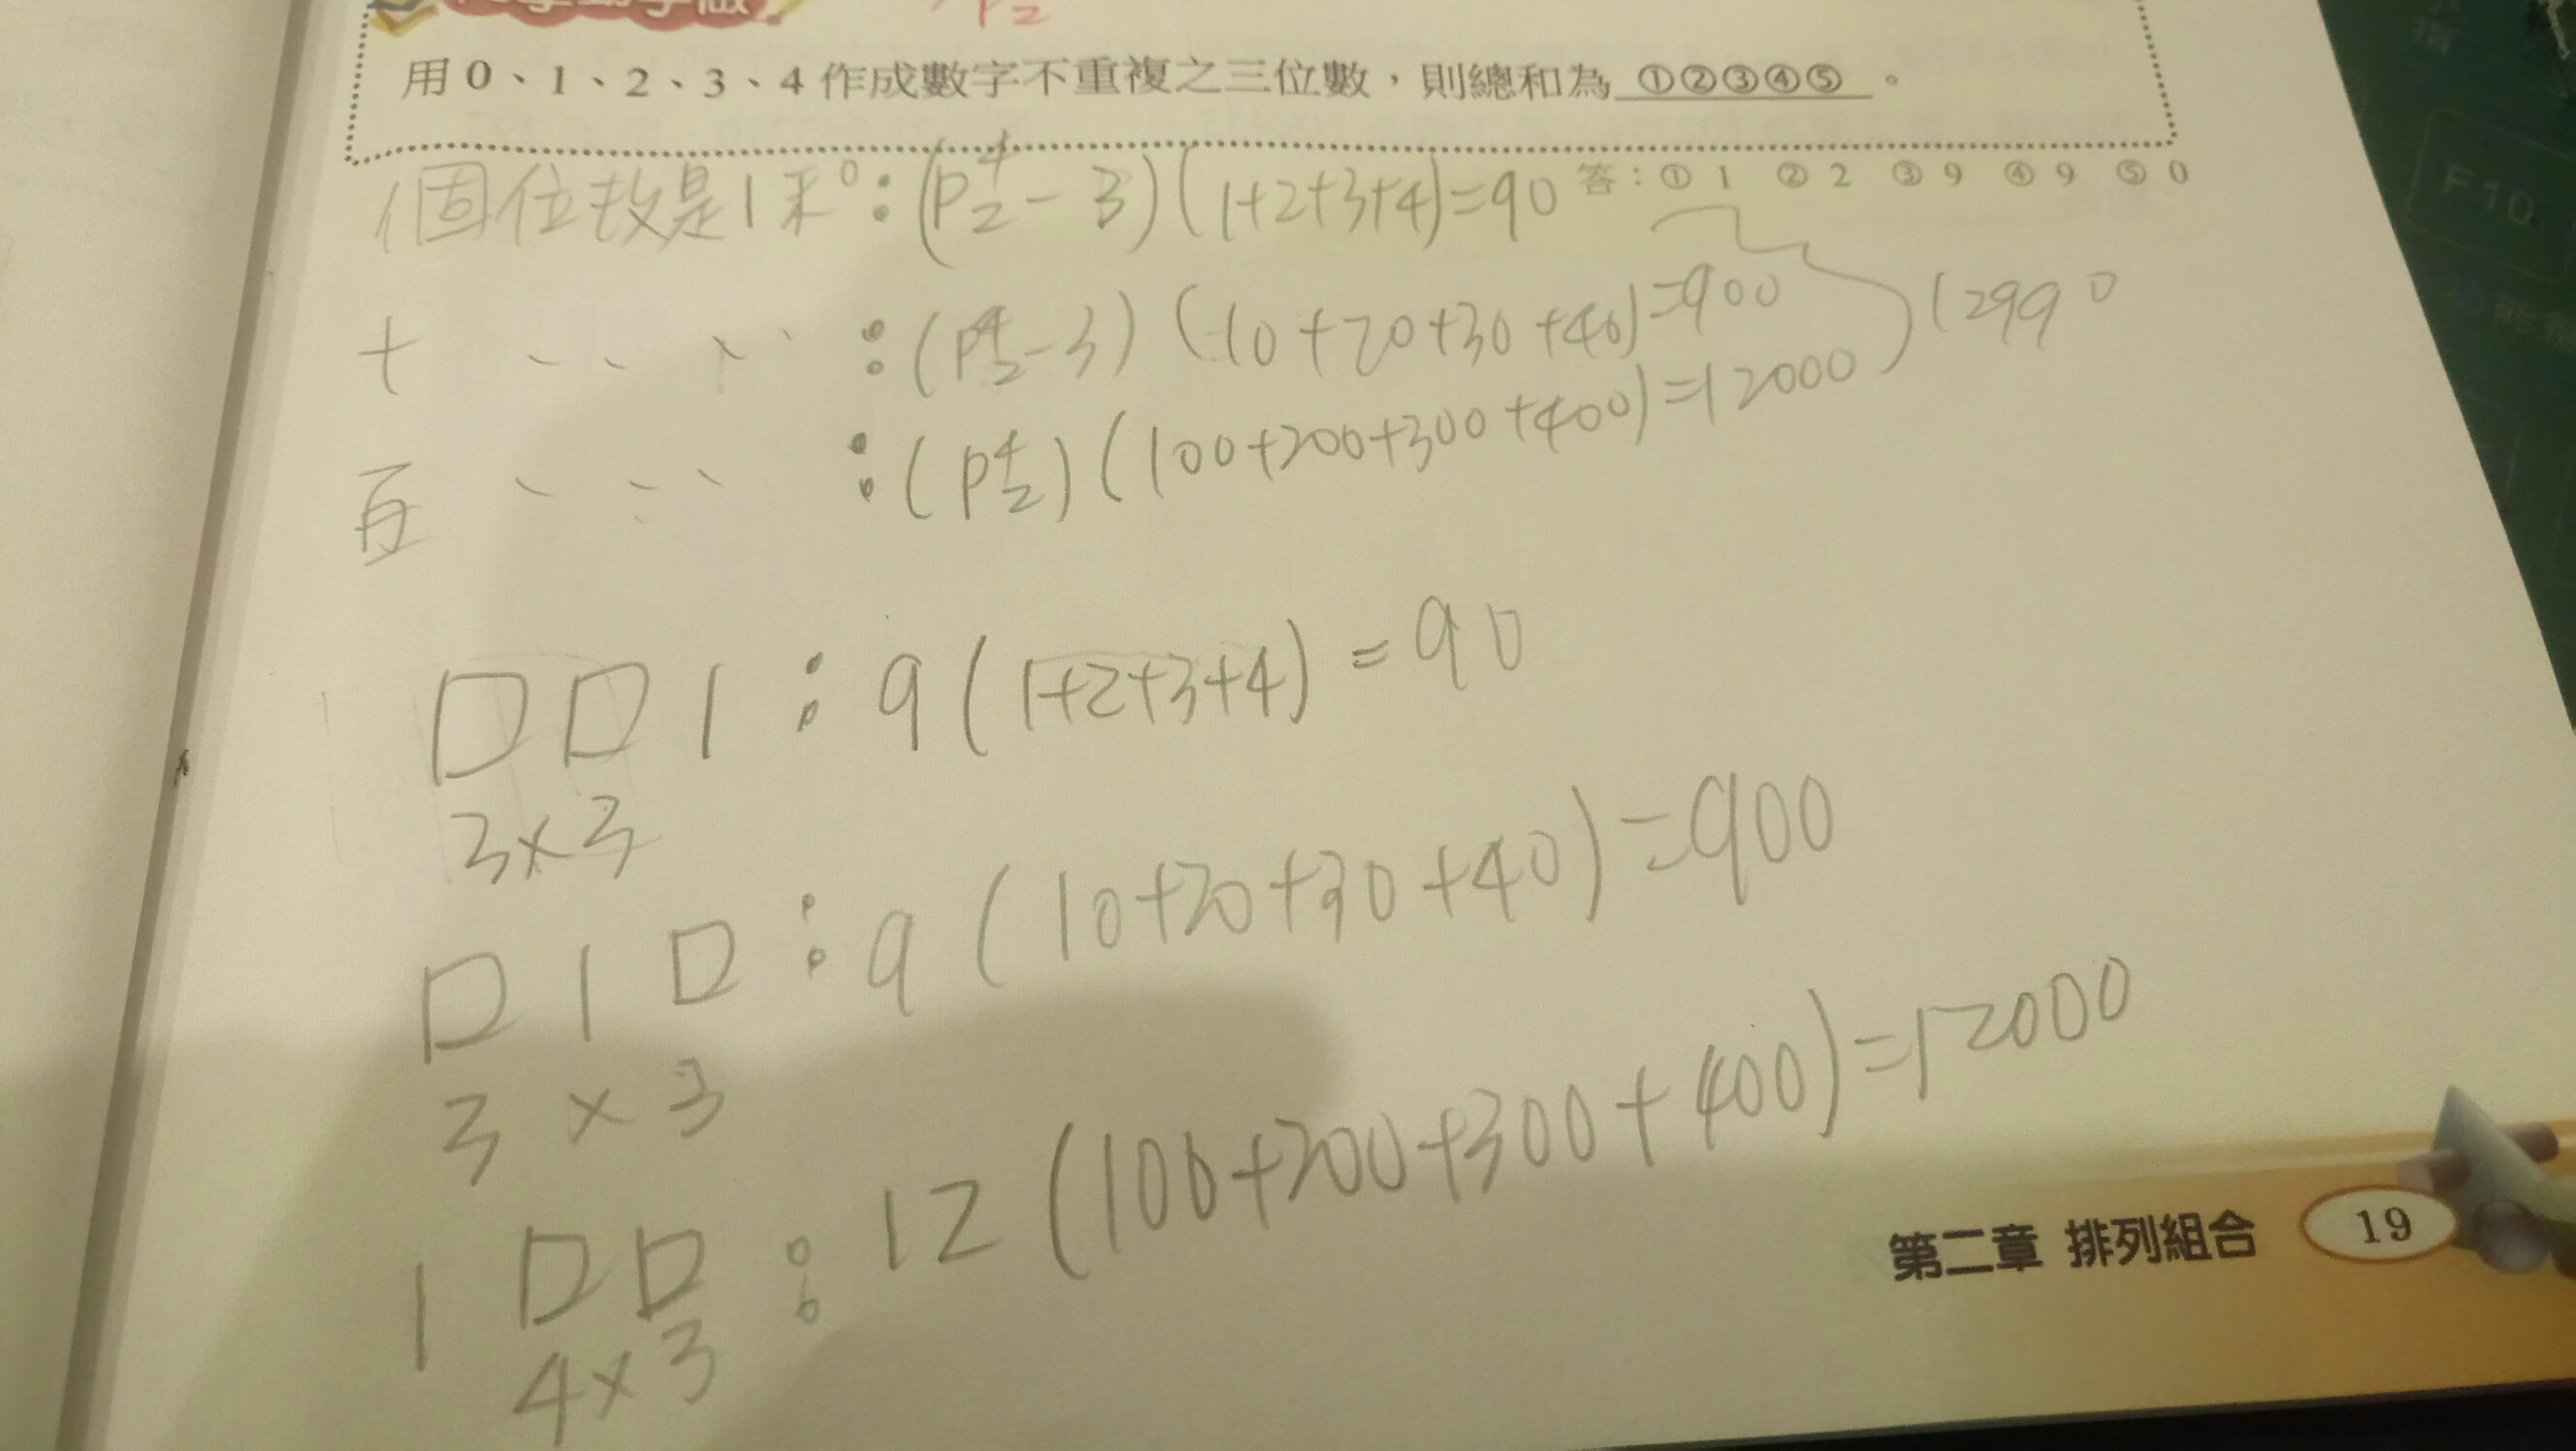 P₂
用 0、1、2、3、4 作成數字不重複之三位數，則總和為 ①②③④⑤ 。
答：① 1 ② 2 ③ 9 ④ 9 ⑤ 0
個位數是1: (P⁴₂-3)(1+2+3+4)=90
十 : (P⁴₂-3)(10+20+30+40)=900
12990
百 : (P⁴₂)(100+200+300+400)=12000
□□1 : 9(1+2+3+4)=90
3×3
□1□ : 9(10+20+30+40)=900
3×3
1□□ : 12(100+200+300+400)=12000
4×3
第二章 排列組合 19
F10